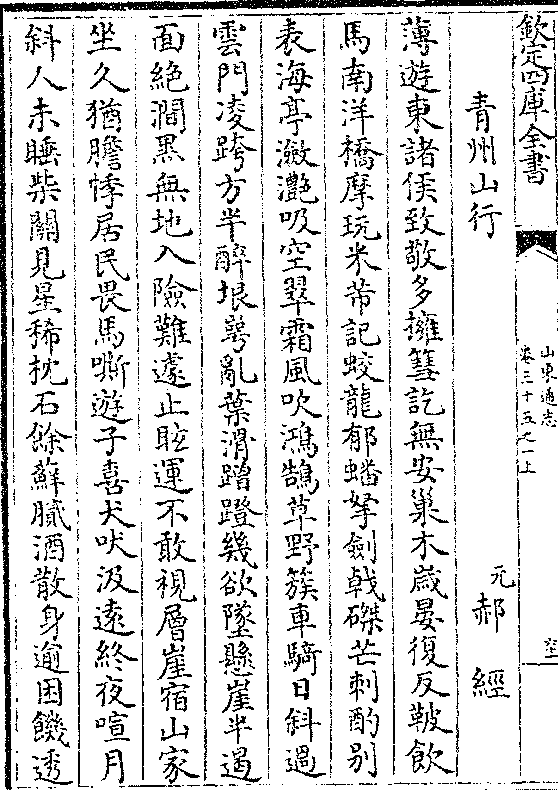 欽定四庫全書
山東通志
卷三十五之一上
青州山行
元郝經
薄遊東諸侯致敬多擁篲訖無安巢木嵗晏復反鞁飲
馬南洋橋摩玩米芾記蛟龍郁蟠拏劍戟磔芒刺酌别
表海亭瀲灔吸空翠霜風吹鴻鵠草野簇車騎日斜過
雲門凌跨方半醉垠崿亂葉滑蹭蹬幾欲墜懸崖半遏
面絶澗黒無地入險難遽止眩運不敢視層崖宿山家
坐久猶膽悸居民畏馬嘶遊子喜犬吠汲逺終夜喧月
斜人未睡柴闗見星稀枕石餘蘚膩酒散身逾困饑透